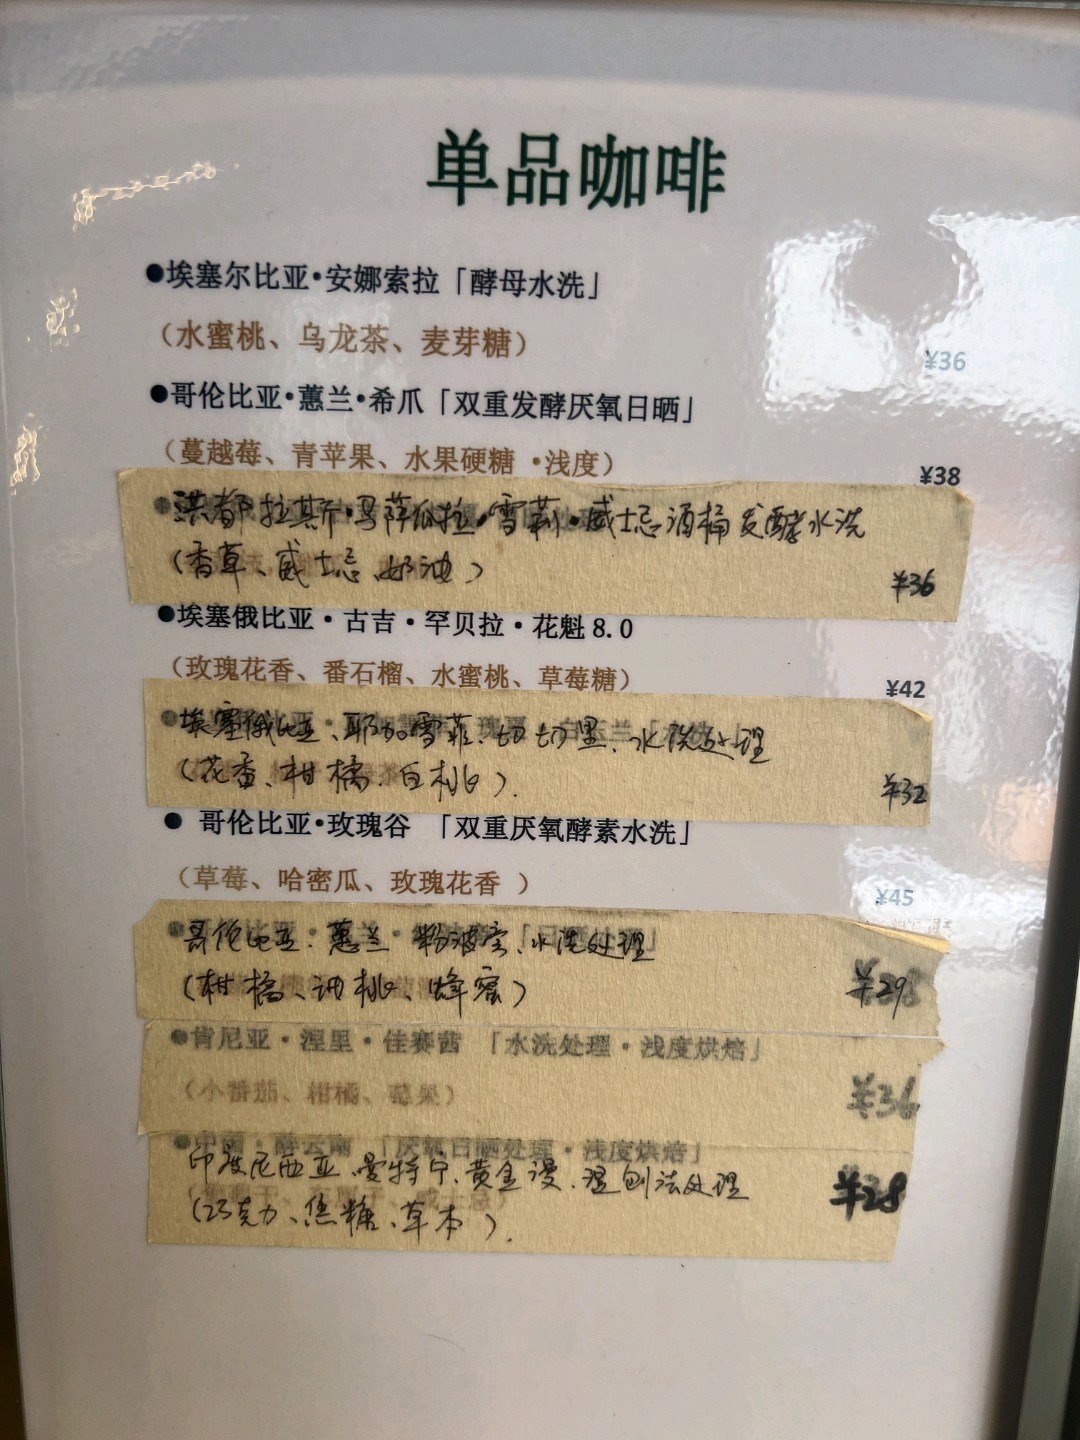 单品咖啡
●埃塞尔比亚·安娜索拉「酵母水洗」
（水蜜桃、乌龙茶、麦芽糖）
¥36
●哥伦比亚·蕙兰·希爪「双重发酵厌氧日晒」
（蔓越莓、青苹果、水果硬糖 ·浅度）
¥38
洪都拉斯·马萨瓜拉·雪莉·威士忌酒桶发酵水洗
（香草、威士忌、奶油）
¥36
●埃塞俄比亚·古吉·罕贝拉·花魁8.0
（玫瑰花香、番石榴、水蜜桃、草莓糖）
¥42
埃塞俄比亚、耶加雪菲、切切里、水洗处理
（花香、柑橘、白桃）.
¥32
● 哥伦比亚·玫瑰谷 「双重厌氧酵素水洗」
（草莓、哈密瓜、玫瑰花香 ）
¥45
哥伦比亚、蕙兰 粉波旁、水洗处理
（柑橘、油桃、蜂蜜）
¥29
●肯尼亚·涅里·佳赛茜 「水洗处理·浅度烘焙」
（小番茄、柑橘、莓果）
¥36
印度尼西亚、曼特宁、黄金曼、湿刨法处理
（巧克力、焦糖、草本）.
¥28